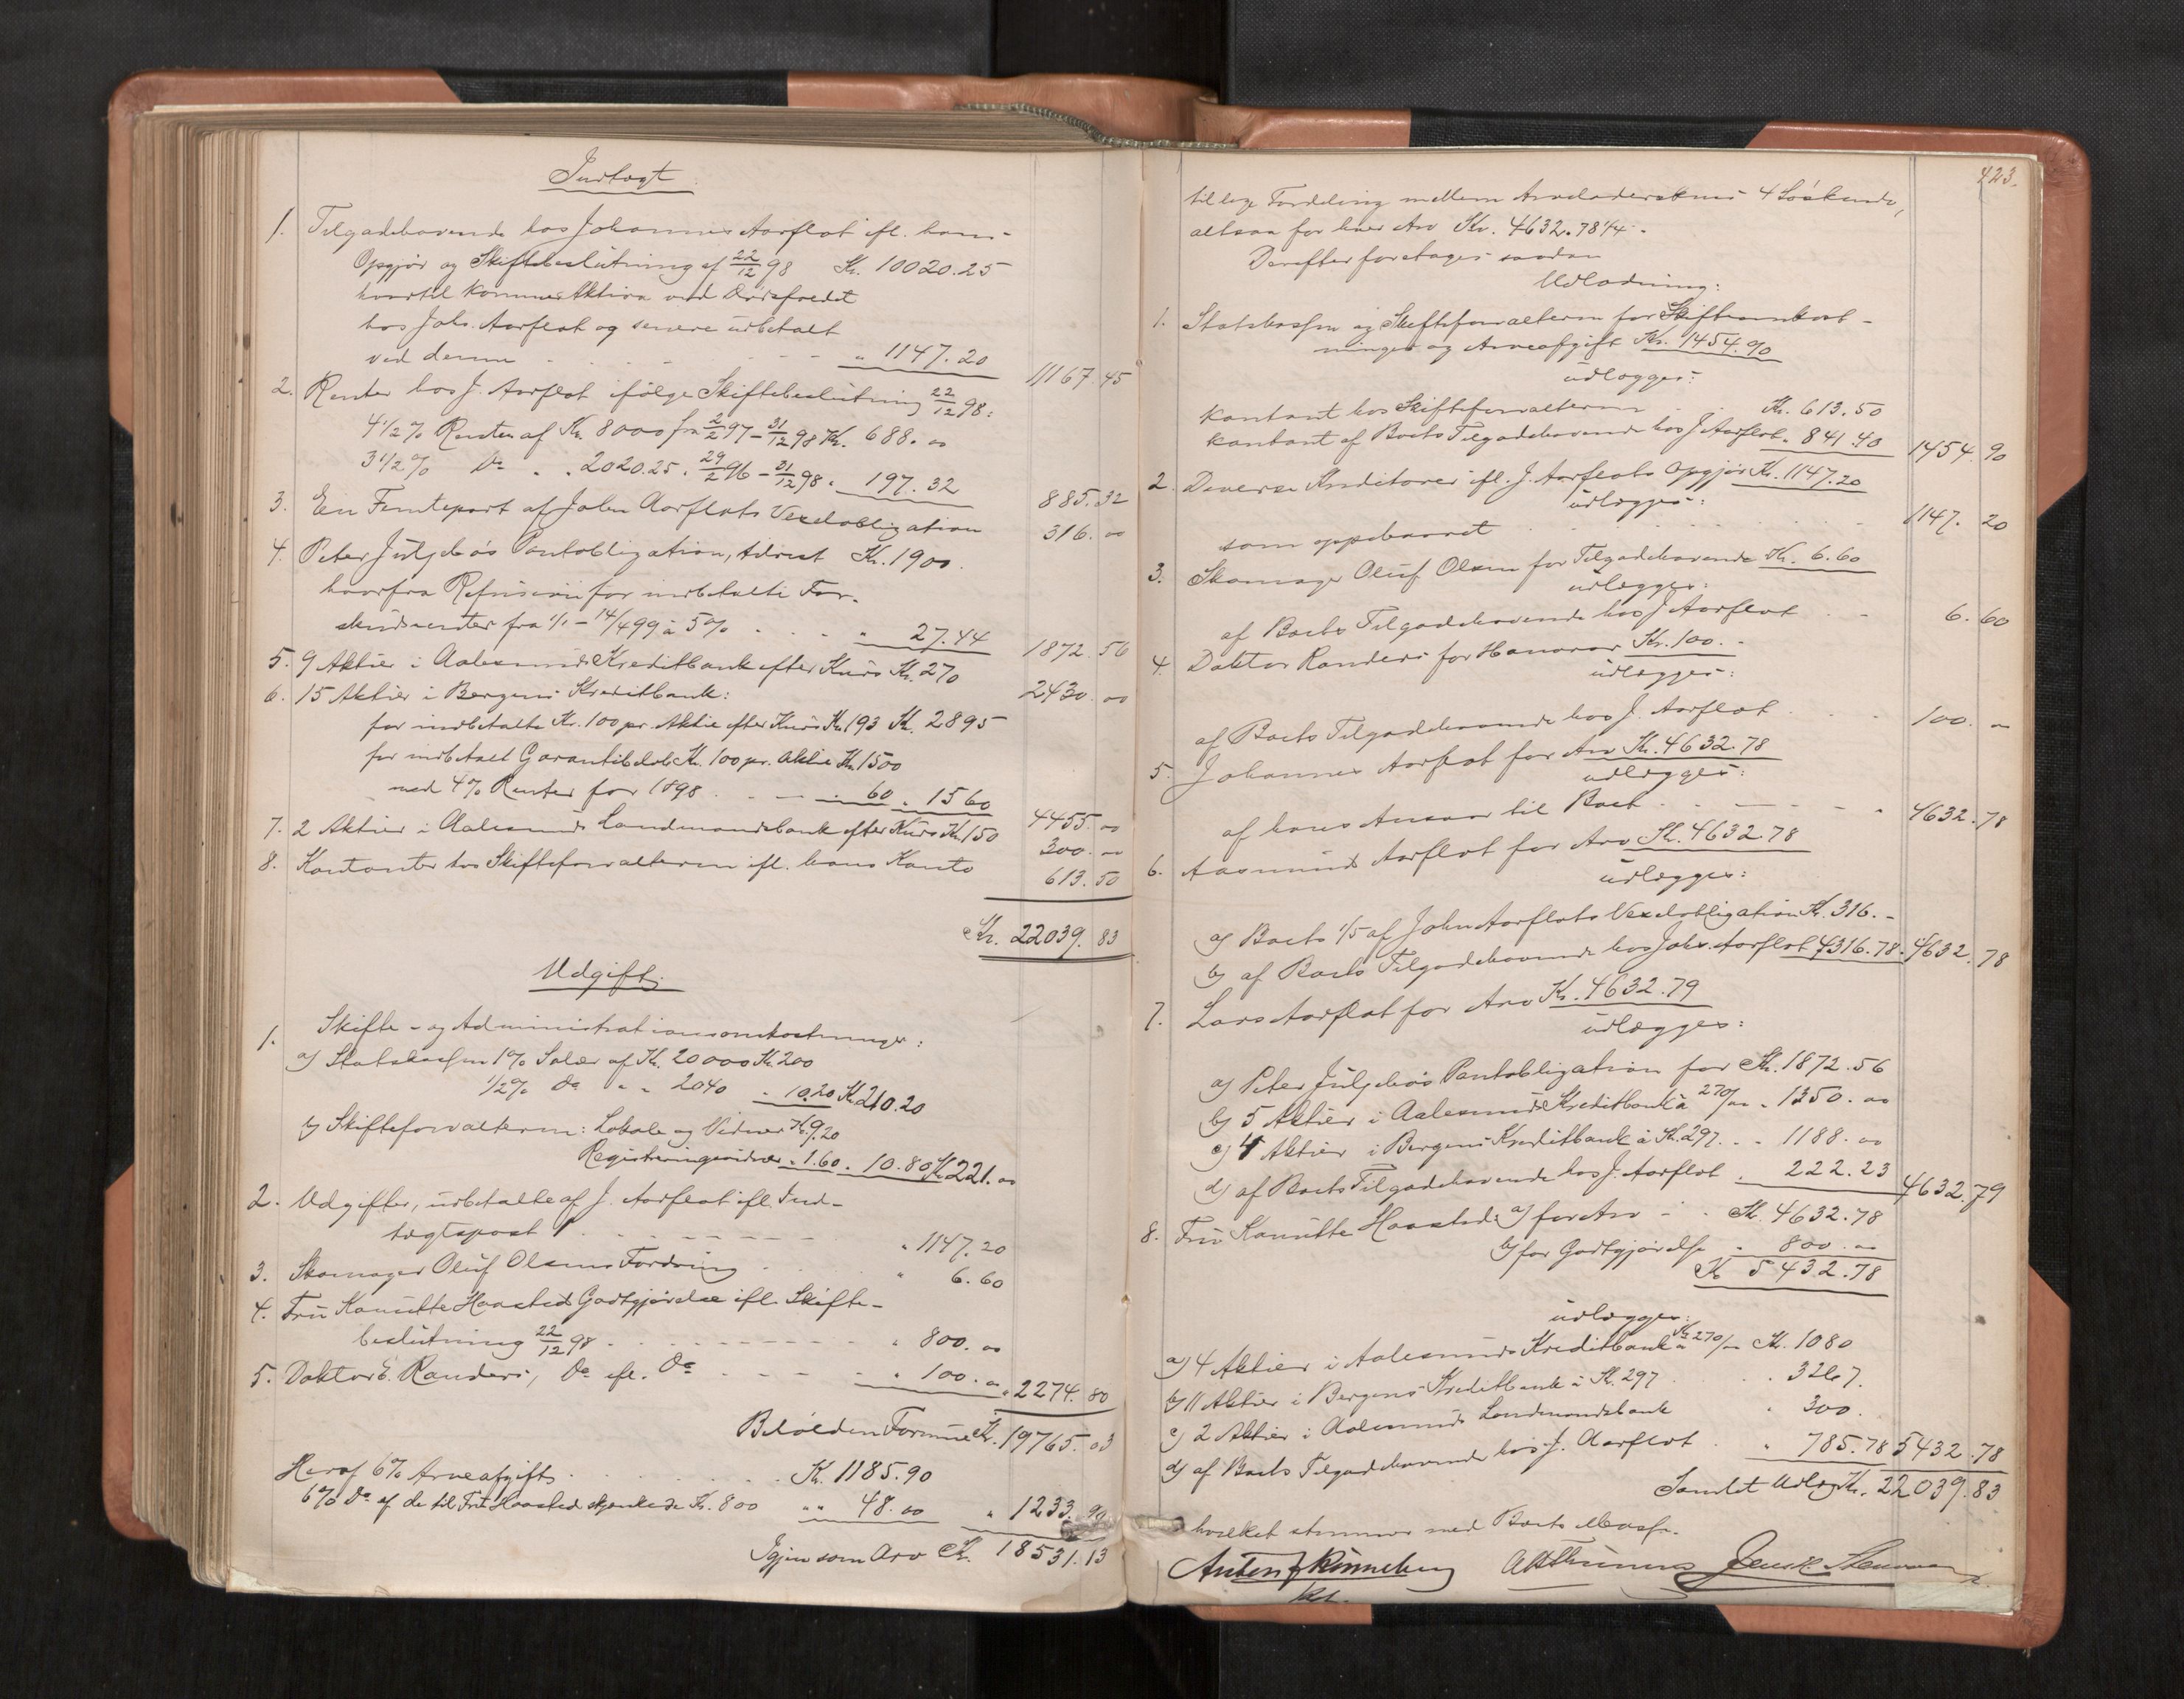 Indtægt:
1. Tilgodehavende hos Johannes Aarflot ifl. hans
Opgjør og Skiftebeslutning af 22/12 98 Kr. 10020.25
hvortil kommer Aktiva ved Dødsfaldet
hos Johs. Aarflot og senere udbetalt
ved denne - - - " 1147.20 11167.45
2. Renter hos J. Aarflot ifølge Skiftebeslutning 22/12 98:
4 1/2 % Renter af Kr. 8000 fra 2/2 97 - 31/12 98 Kr. 688.00
3 1/2 % Do " " 2020.25 " 29/2 96 - 31/12 98 " 197.32 885.32
3. En Femtepart af John Aarflots Vexelobligation 316.00
4. Peter Juljebøs Pantobligation, Kr. 1900.
hvorfra Refusion for indbetalte For-
skudsrenter fra 1/1 - 14/4 99 à 5 % . . . " 27.44 1872.56
5. 9 Aktier i Aalesunds Kreditbank efter Kurs Kr. 270 2430.00
6. 15 Aktier i Bergens Kreditbank:
for indbetalte Kr. 100 pr. Aktie efter Kurs Kr. 193 Kr. 2895
for indbetalt Garantibeløb Kr. 100 pr. Aktie Kr. 1500
med 4 % Renter for 1898 . - - " 60 " 1560 4455.00
7. 2 Aktier i Aalesunds Landmandsbank efter Kurs Kr. 150 300.00
8. Kontanter hos Skifteforvalteren ifl. hans Konto 613.50
Kr. 22039.83
Udgift:
1. Skifte- og Administrationsomkostninger:
a) Statskassen 1 % Salær af Kr. 20000 Kr. 200
1/2 % Do " " 2040 " 10.20 Kr. 210.20
b) Skifteforvalteren: Lokale og Vidner Kr. 9.20
Registreringsvidner " 1.60 " 10.80 Kr. 221.00
2. Udgifter, udbetalte af J. Aarflot ifl. Ind-
tægtspost 1 . - - - - - " 1147.20
3. Skomager Oluf Olsens Fordring . . " 6.60
4. Fru Haasteds Godtgjørelse ifl. Skifte-
beslutning 22/12 98 . - - - - - " 800.00
5. Doktor E. Randers, Do ifl. Do - - - - " 100.00 " 2274.80
Beholden Formue Kr. 19765.03
Heraf 6 % Arveafgift . . . . . Kr. 1185.90
6 % Do af de til Fru Haasted skjænkede Kr. 800 " " 48.00 " 1233.90
Igjen som Arv Kr. 18531.13
423.
til lige Fordeling mellem Arveladerskens 4 Søskende,
altsaa for hver Arv Kr. 4632.78 1/4.
Derefter foretages saadan
Udlodning:
1. Statskassen og Skifteforvalteren for Skifteomkost-
ninger og Arveafgift Kr. 1454.90
udlægges:
kontant hos Skifteforvalteren . . Kr. 613.50
kontant af Boets Tilgodehavende hos J. Aarflot " 841.40 1454.90
2. Diverse Kreditorer ifl. J. Aarflots Opgjør Kr. 1147.20
udlægges:
som oppebaaret . - - - - - 1147.20
3. Skomager Oluf Olsen for Tilgodehavende Kr. 6.60
udlægges:
af Boets Tilgodehavende hos J. Aarflot . - 6.60
4. Doktor Randers for Honorar Kr. 100.-
udlægges:
af Boets Tilgodehavende hos J. Aarflot . . . 100.00
5. Johannes Aarflot for Arv Kr. 4632.78
udlægges:
af hans Ansvar til Boet . - - - - 4632.78
6. Aasmund Aarflot for Arv Kr. 4632.78
udlægges:
a) Boets 1/5 af John Aarflots Vexelobligation Kr. 316.-
b) af Boets Tilgodehavende hos Johs. Aarflot 4316.78 4632.78
7. Lars Aarflot for Arv Kr. 4632.79
udlægges:
a) Peter Juljebøs Pantobligation for Kr. 1872.56
b) 5 Aktier i Aalesunds Kreditbank à 270/00 " 1350.00
c) 4 Aktier i Bergens Kreditbank à Kr. 297 . . " 1188.00
d) af Boets Tilgodehavende hos J. Aarflot . 222.23 4632.79
8. Fru Haasted: a) for Arv - . Kr. 4632.78
b) for Godtgjørelse " 800.00
Kr. 5432.78
udlægges:
a) 4 Aktier i Aalesunds Kreditbank à Kr. 270/00 Kr. 1080
b) 11 Aktier i Bergens Kreditbank à Kr. 297 . . " 3267.
c) 2 Aktier i Aalesunds Landmandsbank " 300.
d) af Boets Tilgodehavende hos J. Aarflot . " 785.78 5432.78
Samlet Udlæg Kr. 22039.83
hvilket stemmer med Boets Masse.
Anton J Rønneberg